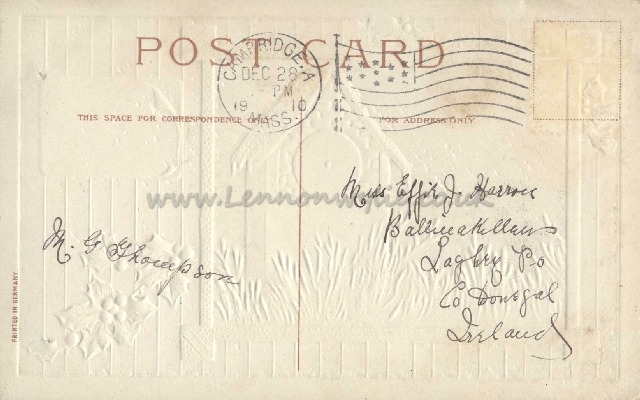 POST CARD
CAMBRIDGE A
DEC 28
PM
1910
MASS.
THIS SPACE FOR CORRESPONDENCE ONLY
FOR ADDRESS ONLY
Miss Effie J. Harron
Laghey P.o
Co Donegal
Ireland
M. G Thompson
PRINTED IN GERMANY